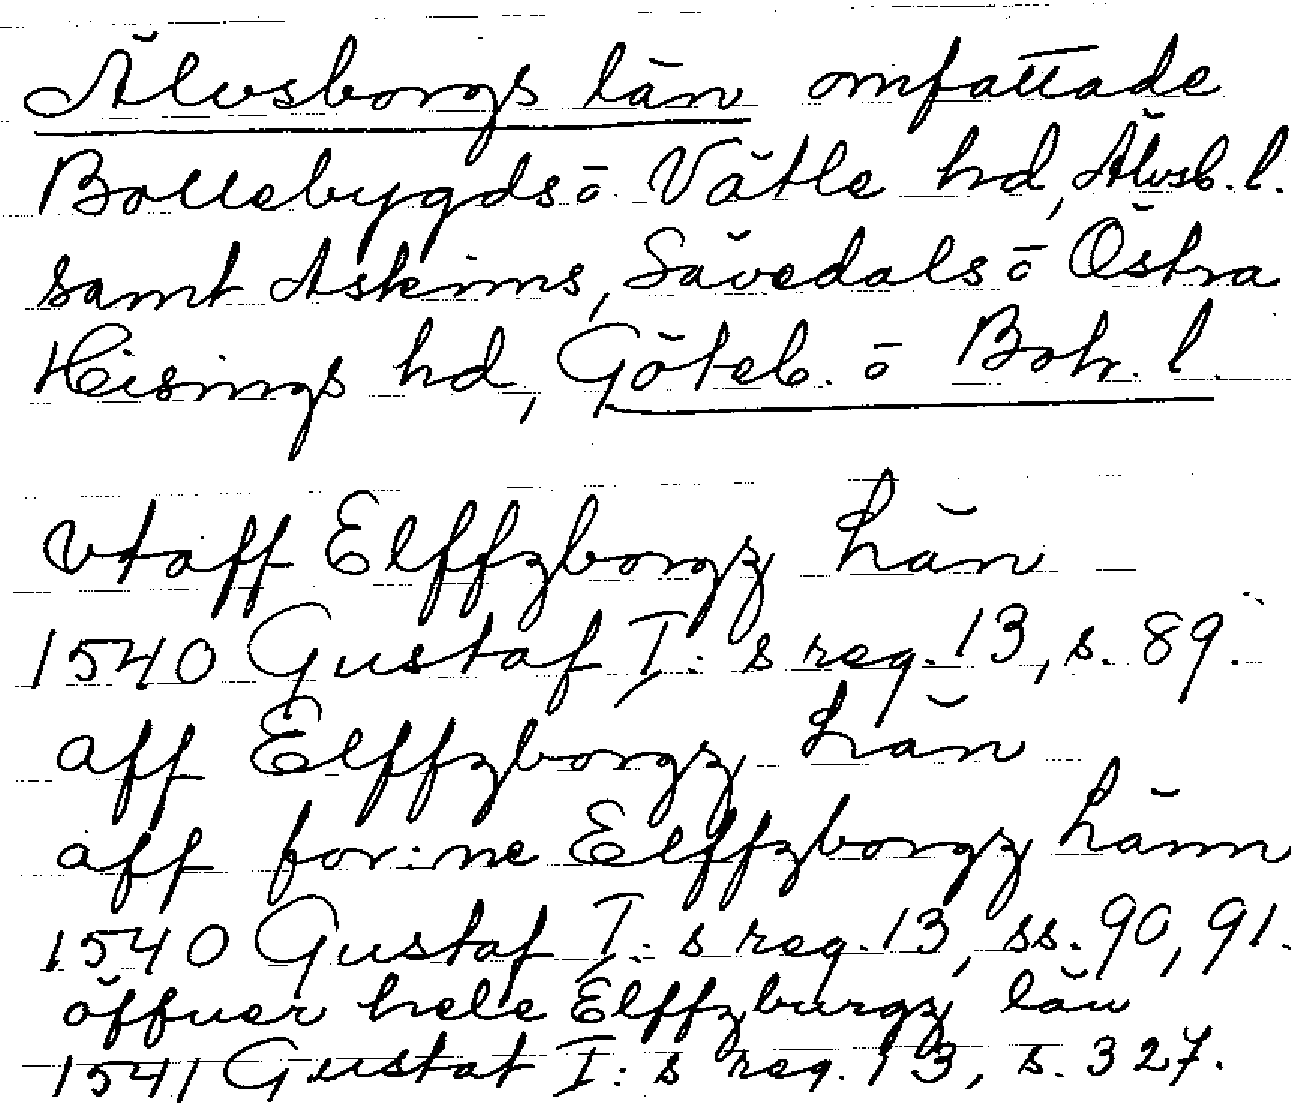 Älvsborgs län omfattade
Bollebygds ō Vätle hd, Älvsb. l.
samt Askims, Sävedals ō Östra
Hisings hd, Göteb. ō Boh. l.
vtaff Elffzborgz Län
1540 Gustaf I: s reg. 13, s. 89.
aff Elffzborgz Län
aff for:ne Elffzborgz Länn
1540 Gustaf I: s reg. 13, ss. 90, 91.
öffuer hele Elffzburgz län
1541 Gustaf I: s reg. 13, s. 327.